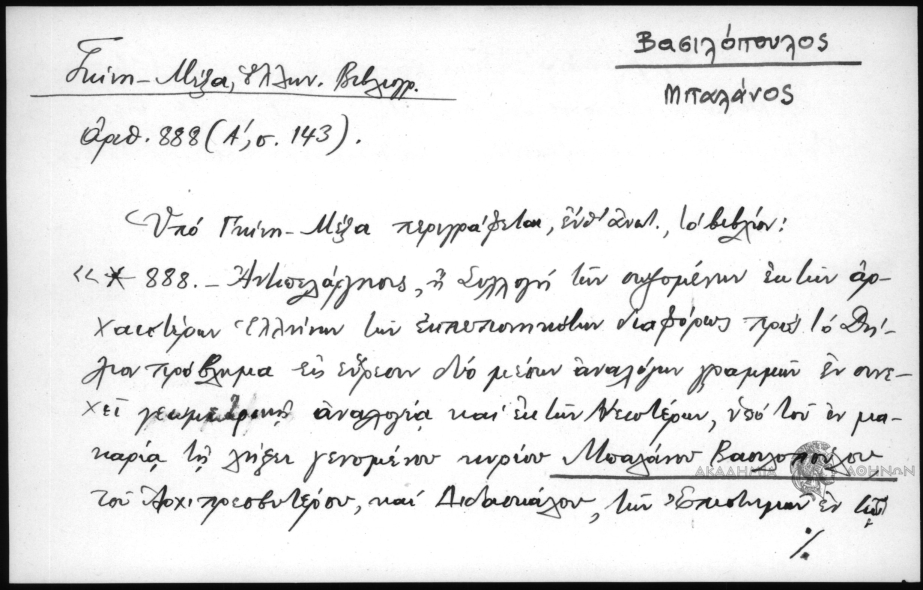 Βασιλόπουλος
Μπαλάνος
Γκίνη-Μέξα, Ἑλλην. Βιβλιογρ.
ἀριθ. 888 (Α', σ. 143).
Ὑπό Γκίνη-Μέξα περιγράφεται, ἔνθ' ἀνωτ., τό βιβλίον:
«* 888. - Ἀντιπελάργησις, ἤ Συλλογή τῶν σωζομένων ἐκ τῶν ἀρ-
χαιοτέρων Ἑλλήνων τῶν ἐκπεπονηκότων διαφόρως πρός τό Δή-
λιον πρόβλημα εἰς εὕρεσιν δύο μέσων ἀναλόγων γραμμῶν ἐν συνε-
χεῖ γεωμετρικῇ ἀναλογίᾳ καί ἐκ τῶν Νεωτέρων, ὑπό τοῦ ἐν μα-
καρίᾳ τῇ λήξει γενομένου κυρίου Μπαλάνου Βασιλοπούλου
τοῦ Ἀρχιπρεσβυτέρου, καί Διδασκάλου, τῶν Ἐπιστημῶν ἐν τῷ
%
ΑΚΑΔΗΜΙΑ ΑΘΗΝΩΝ